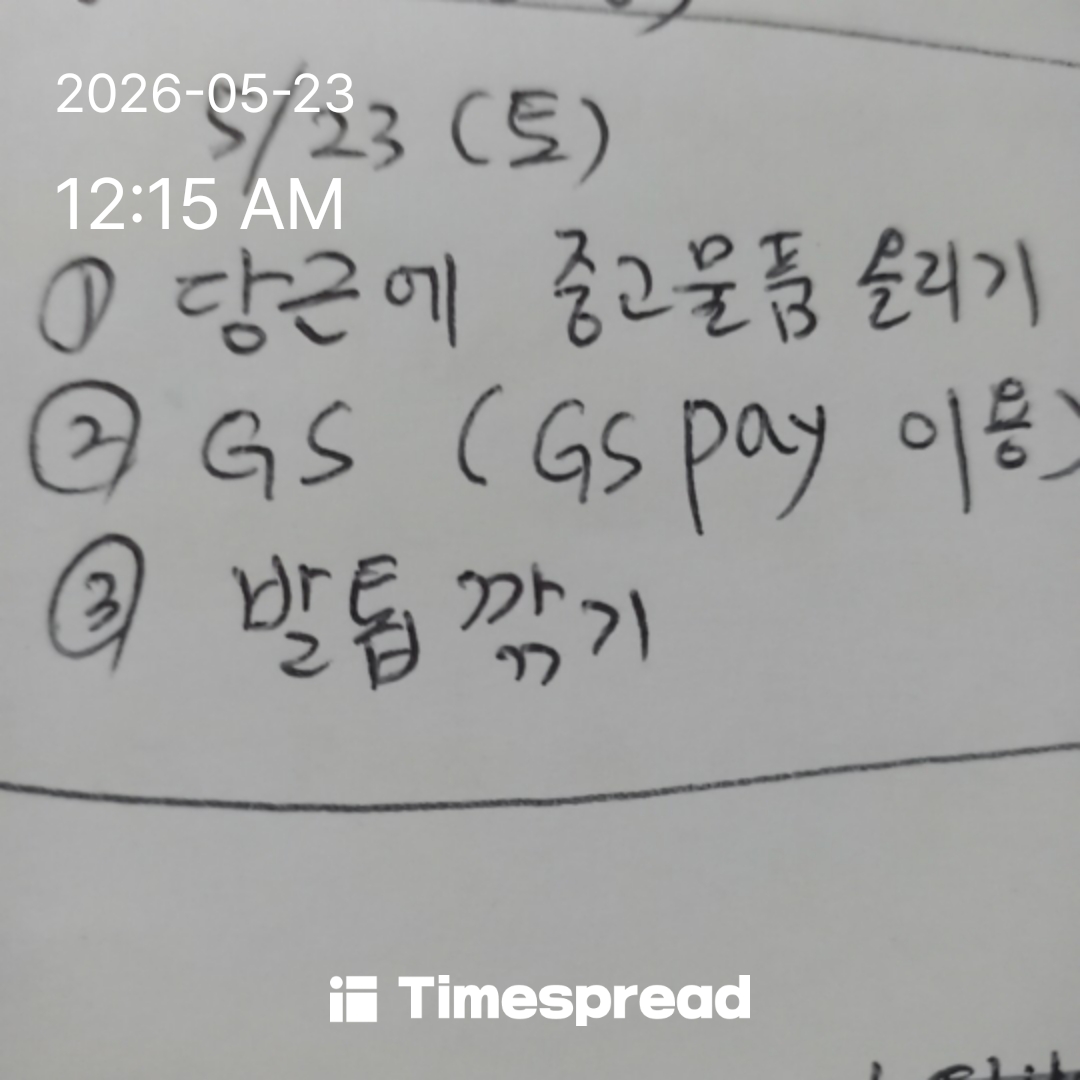 2026-05-23
5/23 (토)
12:15 AM
① 당근에 중고물품 올리기
② GS (GS pay 이용)
③ 발톱 깎기
Timespread